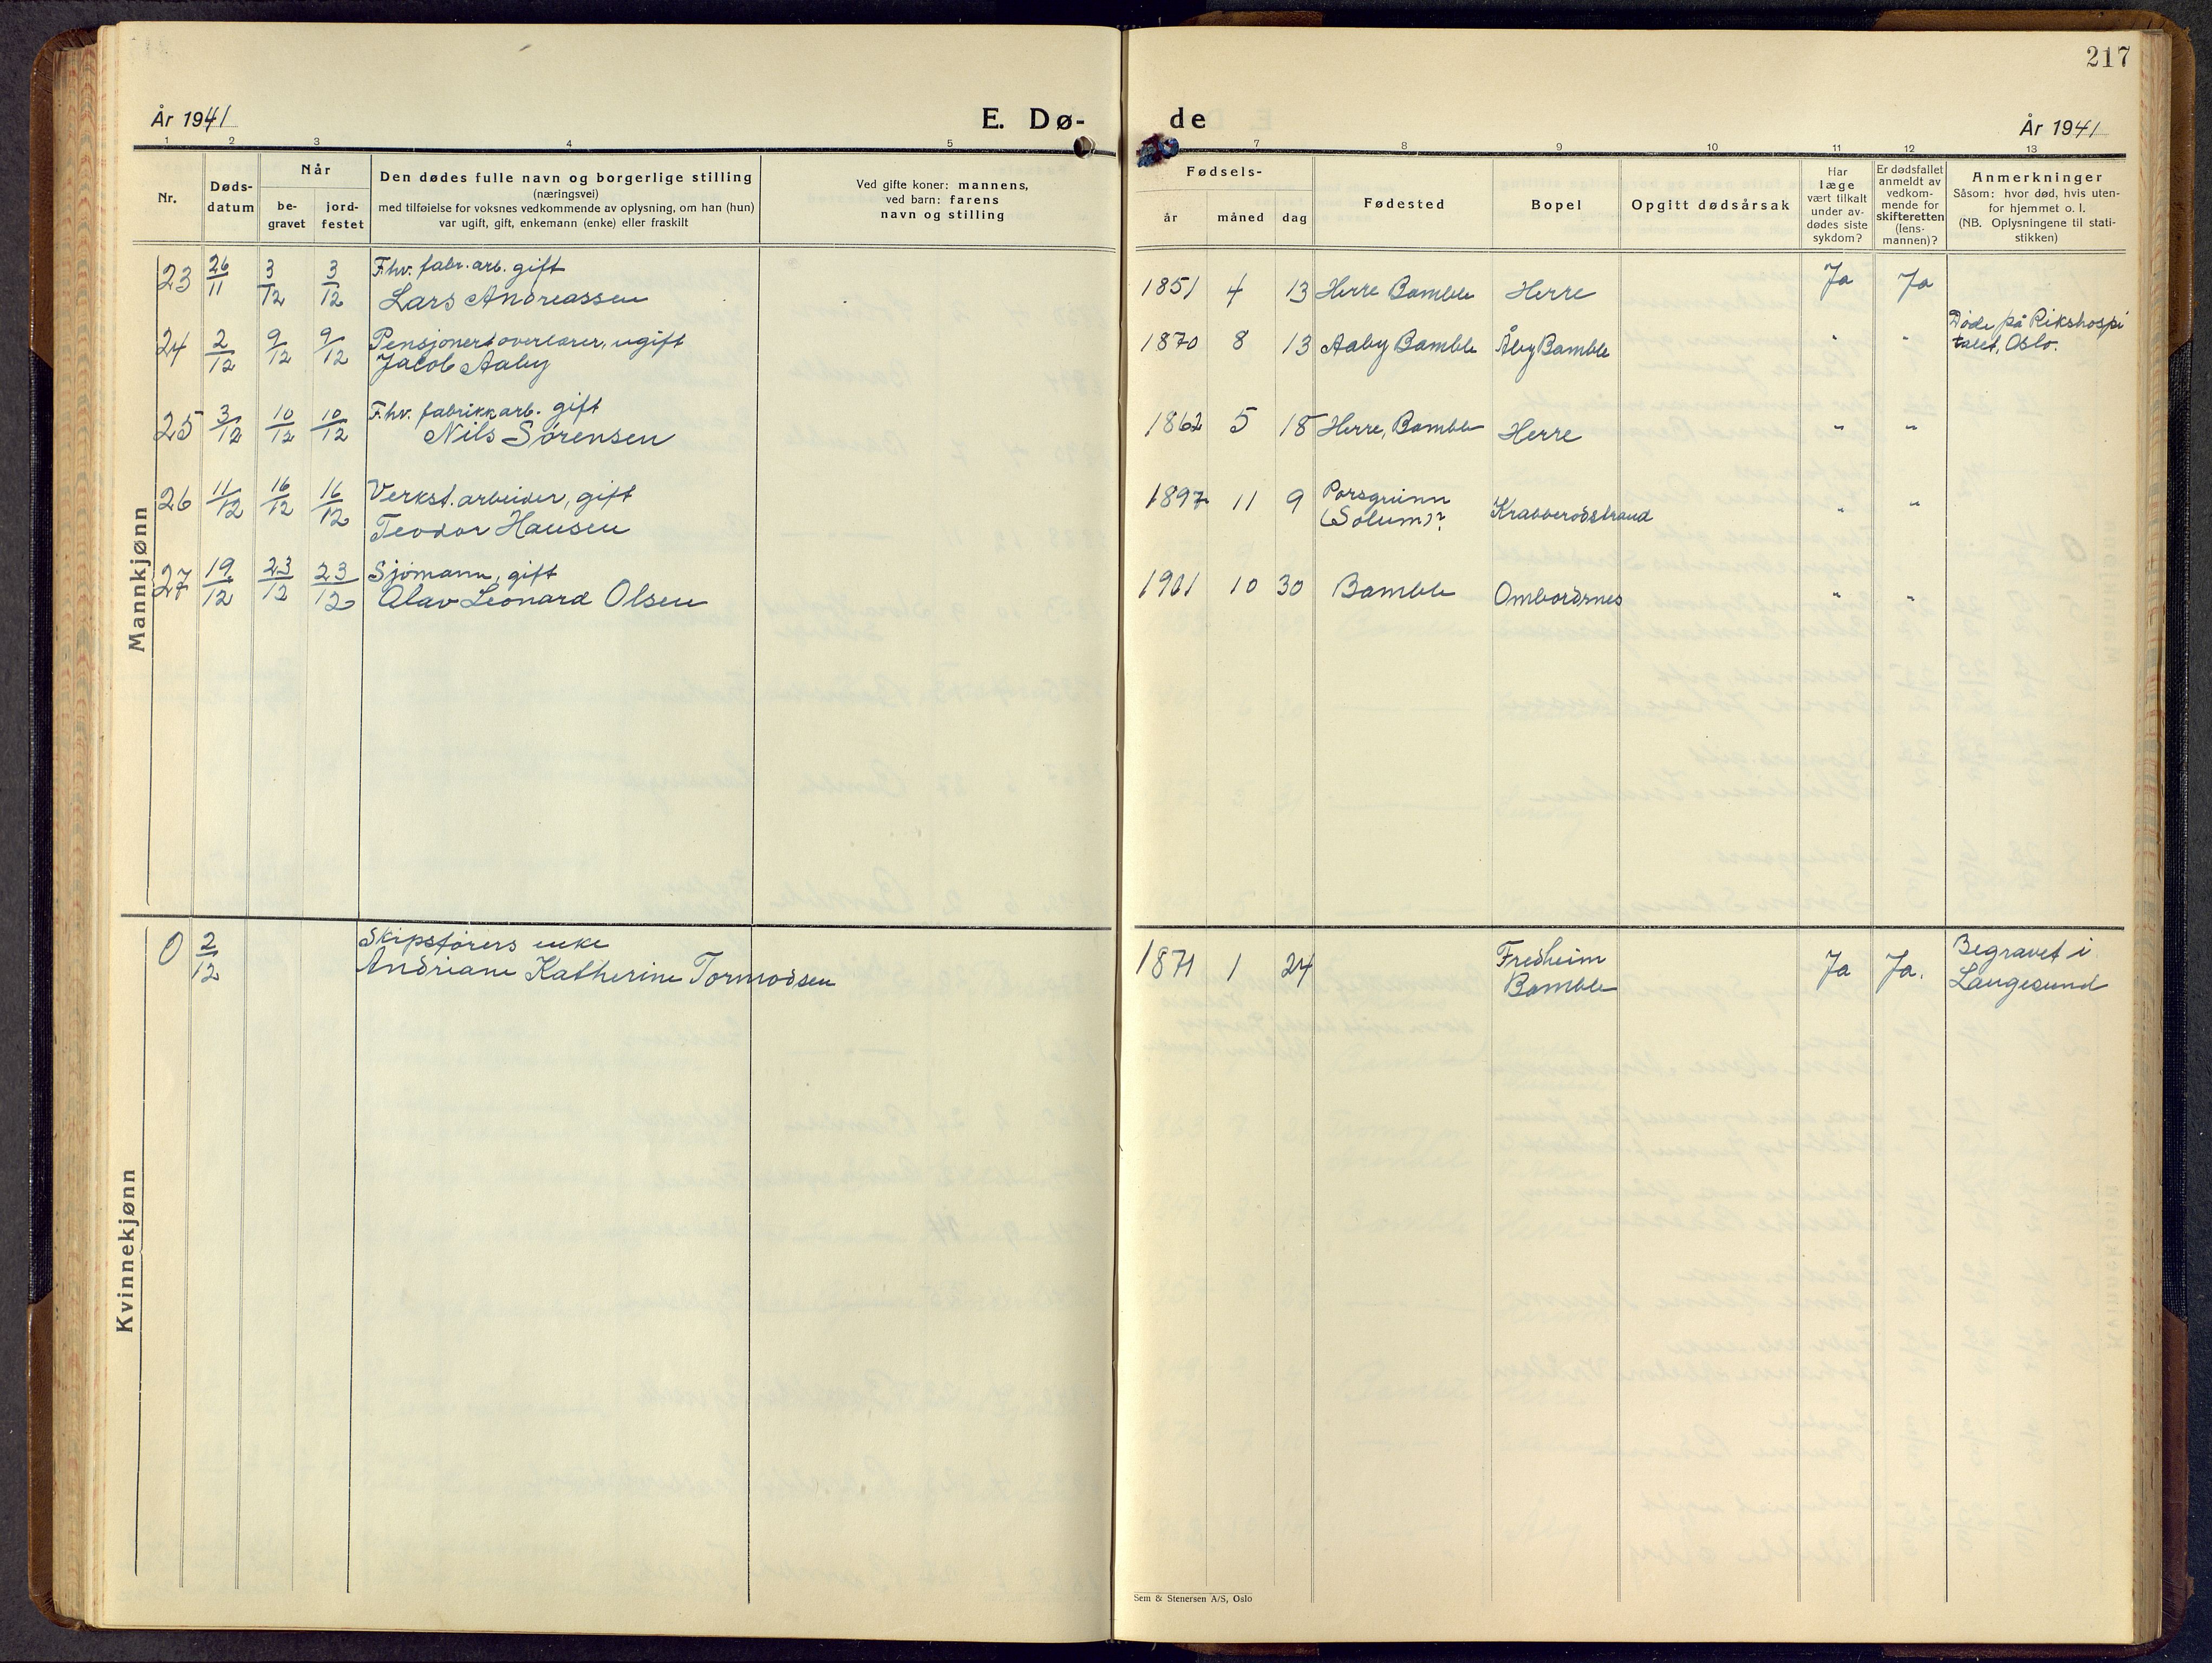 217
År 1941
E. Dø-
de
År 1941
1 2 3 4 5
7 8 9 10 11 12 13
Nr.
Døds-
datum
Når
be-
gravet
jord-
festet
Den dødes fulle navn og borgerlige stilling
(næringsvei)
med tilføielse for voksnes vedkommende av oplysning, om han (hun)
var ugift, gift, enkemann (enke) eller fraskilt
Ved gifte koner: mannens,
ved barn: farens
navn og stilling
Fødsels-
år måned dag
Fødested
Bopel
Opgitt dødsårsak
Har
læge
vært tilkalt
under av-
dødes siste
sykdom?
Er dødsfallet
anmeldt av
vedkom-
mende for
skifteretten
(lens-
mannen)?
Anmerkninger
Såsom: hvor død, hvis uten-
for hjemmet o. l.
(NB. Oplysningene til stati-
stikken)
Mannkjønn
23 26/11 3/12 3/12 F.hv. fabr. arb. gift
Lars Andreassen
1851 4 13 Herre Bamble Herre Ja Ja
24 2/12 9/12 9/12 Pensjonert overlærer, ugift
Jacob Aaby
1870 8 13 Aaby Bamble Åby Bamble " "
Døde på Rikshospi
talet, Oslo.
25 3/12 10/12 10/12 F.hv. fabrikkarb. gift
Nils Sørensen
1862 5 18 Herre, Bamble Herre " "
26 11/12 16/12 16/12 Verkst. arbeider, gift
Teodor Hansen
1897 11 9 Porsgrunn
(Solum)? Krabberødstrand " "
27 19/12 23/12 23/12 Sjømann, gift
Olav Leonard Olsen
1901 10 30 Bamble Ombordsnes " "
Kvinnekjønn
0 2/12 Skipsførers enke
Andriane Katherine Tormodsen
1871 1 24 Fredheim
Bamble Ja Ja.
Begravet i
Langesund
Sem & Stenersen A/S, Oslo